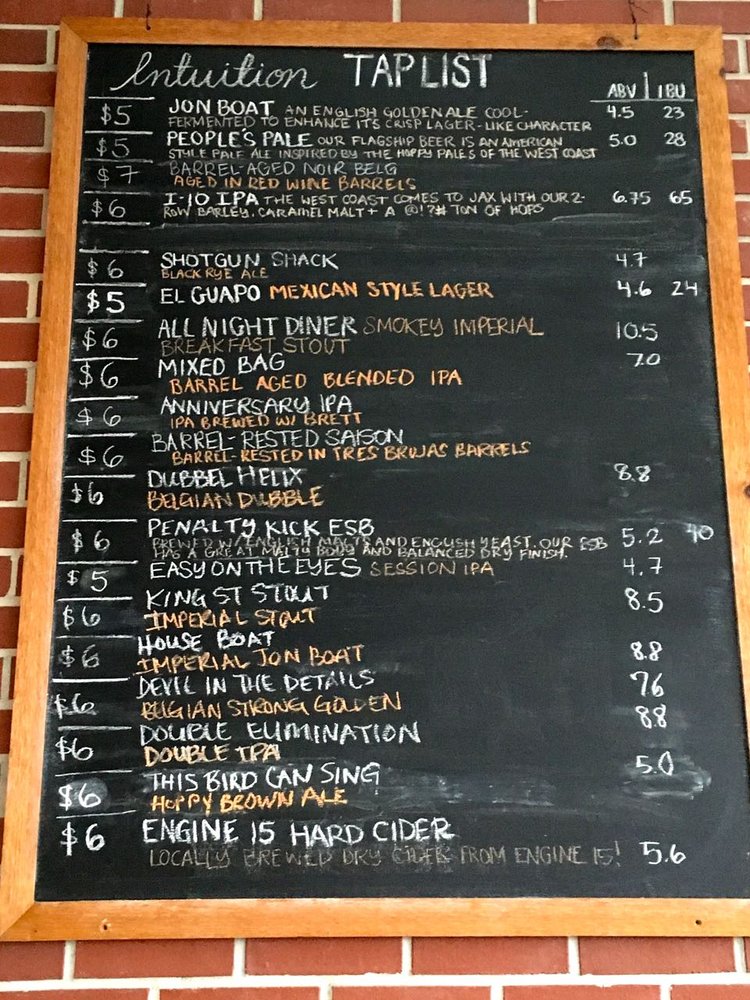 Intuition TAP LIST
ABV | IBU
$5 JON BOAT AN ENGLISH GOLDEN ALE COOL- 4.5 23
FERMENTED TO ENHANCE ITS CRISP LAGER-LIKE CHARACTER
$5 PEOPLE'S PALE OUR FLAGSHIP BEER IS AN AMERICAN 5.0 28
STYLE PALE ALE INSPIRED BY THE HOPPY PALES OF THE WEST COAST
$7 BARREL-AGED NOIR BELG
AGED IN RED WINE BARRELS
$6 I-10 IPA THE WEST COAST COMES TO JAX WITH OUR 2- 6.75 65
ROW BARLEY, CARAMEL MALT + A @!?# TON OF HOPS
$6 SHOTGUN SHACK 4.7
BLACK RYE ALE
$5 EL GUAPO MEXICAN STYLE LAGER 4.6 24
$6 ALL NIGHT DINER SMOKEY IMPERIAL 10.5
BREAKFAST STOUT
$6 MIXED BAG 7.0
BARREL AGED BLENDED IPA
$6 ANNIVERSARY IPA
IPA BREWED W/ BRETT
$6 BARREL-RESTED SAISON
BARREL-RESTED IN TRES BRUJAS BARRELS
$6 DUBBEL HELIX 8.8
BELGIAN DUBBLE
$6 PENALTY KICK ESB 5.2 40
BREWED W/ ENGLISH MALTS AND ENGLISH YEAST. OUR ESB
HAS A GREAT MALTY BODY AND BALANCED DRY FINISH.
$5 EASY ON THE EYES SESSION IPA 4.7
KING ST STOUT 8.5
$6 IMPERIAL STOUT
HOUSE BOAT
$6 IMPERIAL JON BOAT 8.8
DEVIL IN THE DETAILS 76
$6 BELGIAN STRONG GOLDEN 88
DOUBLE ELIMINATION
$6 DOUBLE IPA
THIS BIRD CAN SING 5.0
$6 HOPPY BROWN ALE
$6 ENGINE 15 HARD CIDER
LOCALLY BREWED DRY CIDER FROM ENGINE 15! 5.6